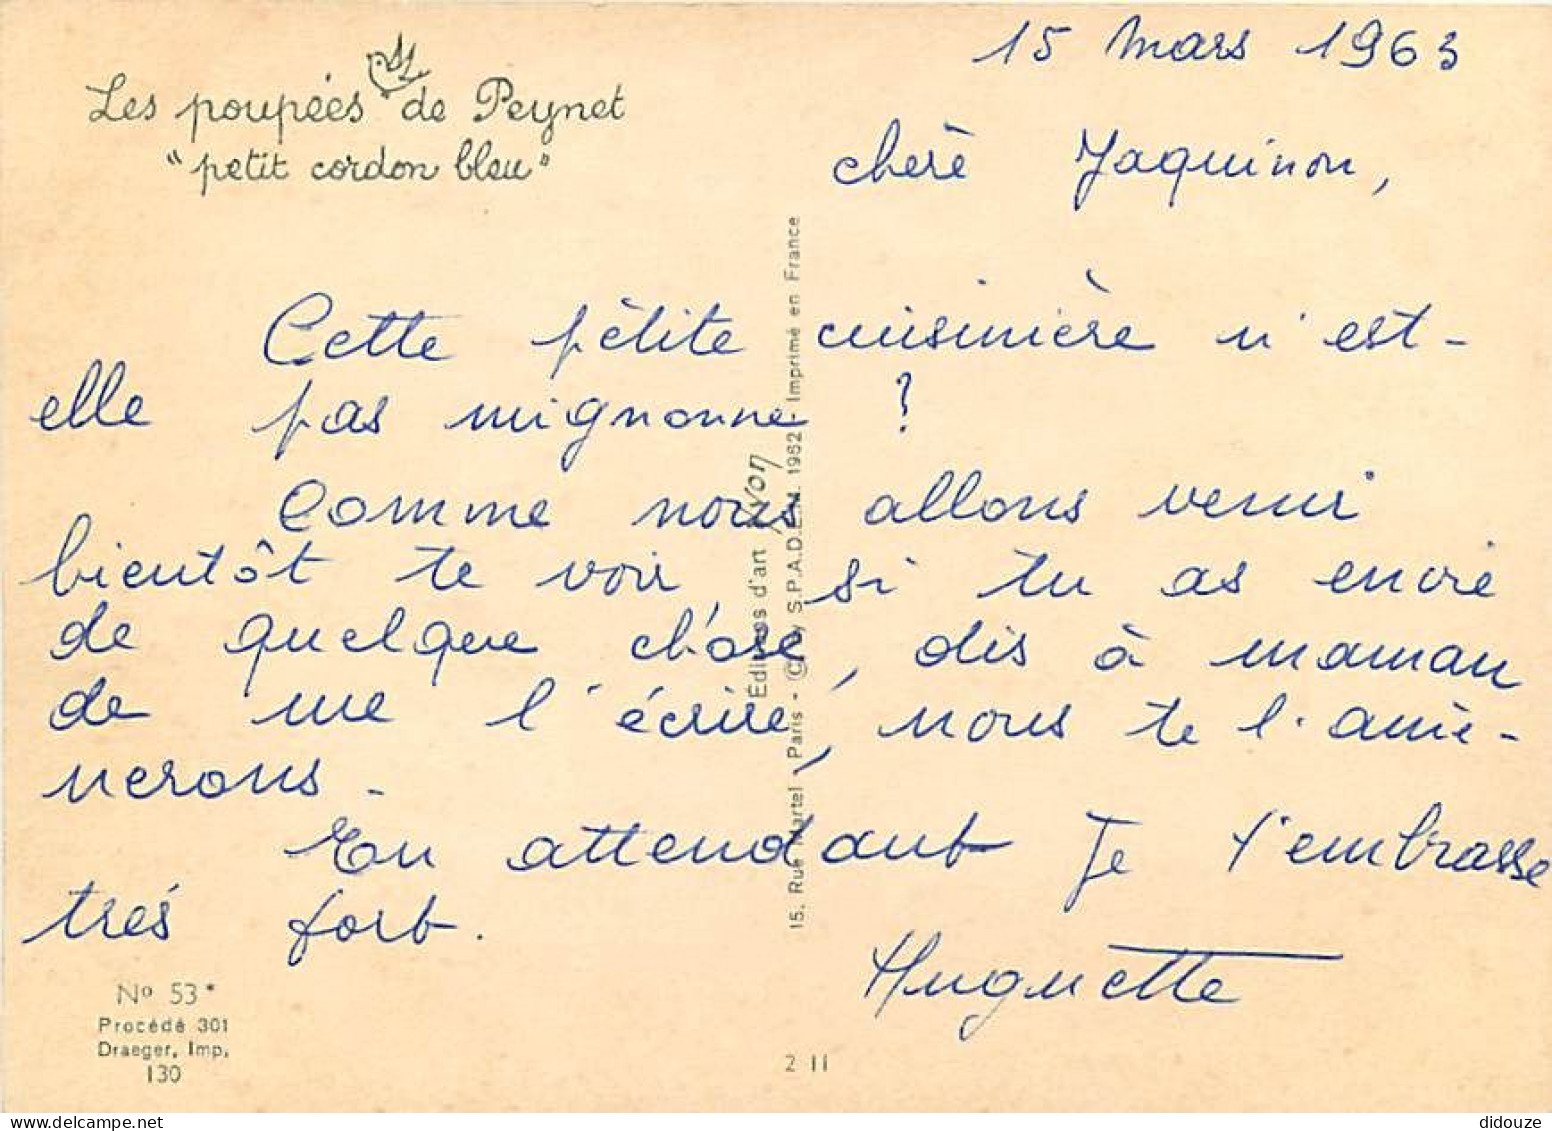 15 mars 1963
Les poupées de Peynet
"petit cordon bleu"
cherè Jaquinon,
Cette pètite cuisinière n'est-
elle pas mignonne ?
Comme nous allons venir
bientôt te voir, si tu as envie
de quelque chose, dis à maman
de me l'écrire, nous te l'amè-
nerons.
En attendant Je t'embrasse
trés fort.
Huguette
Éditions d'art Yvon
15, Rue Martel - Paris - © by S.P.A.D.E.M. 1962 - Imprimé en France
No 53*
Procédé 301
Draeger, Imp,
130
2 11
didouze